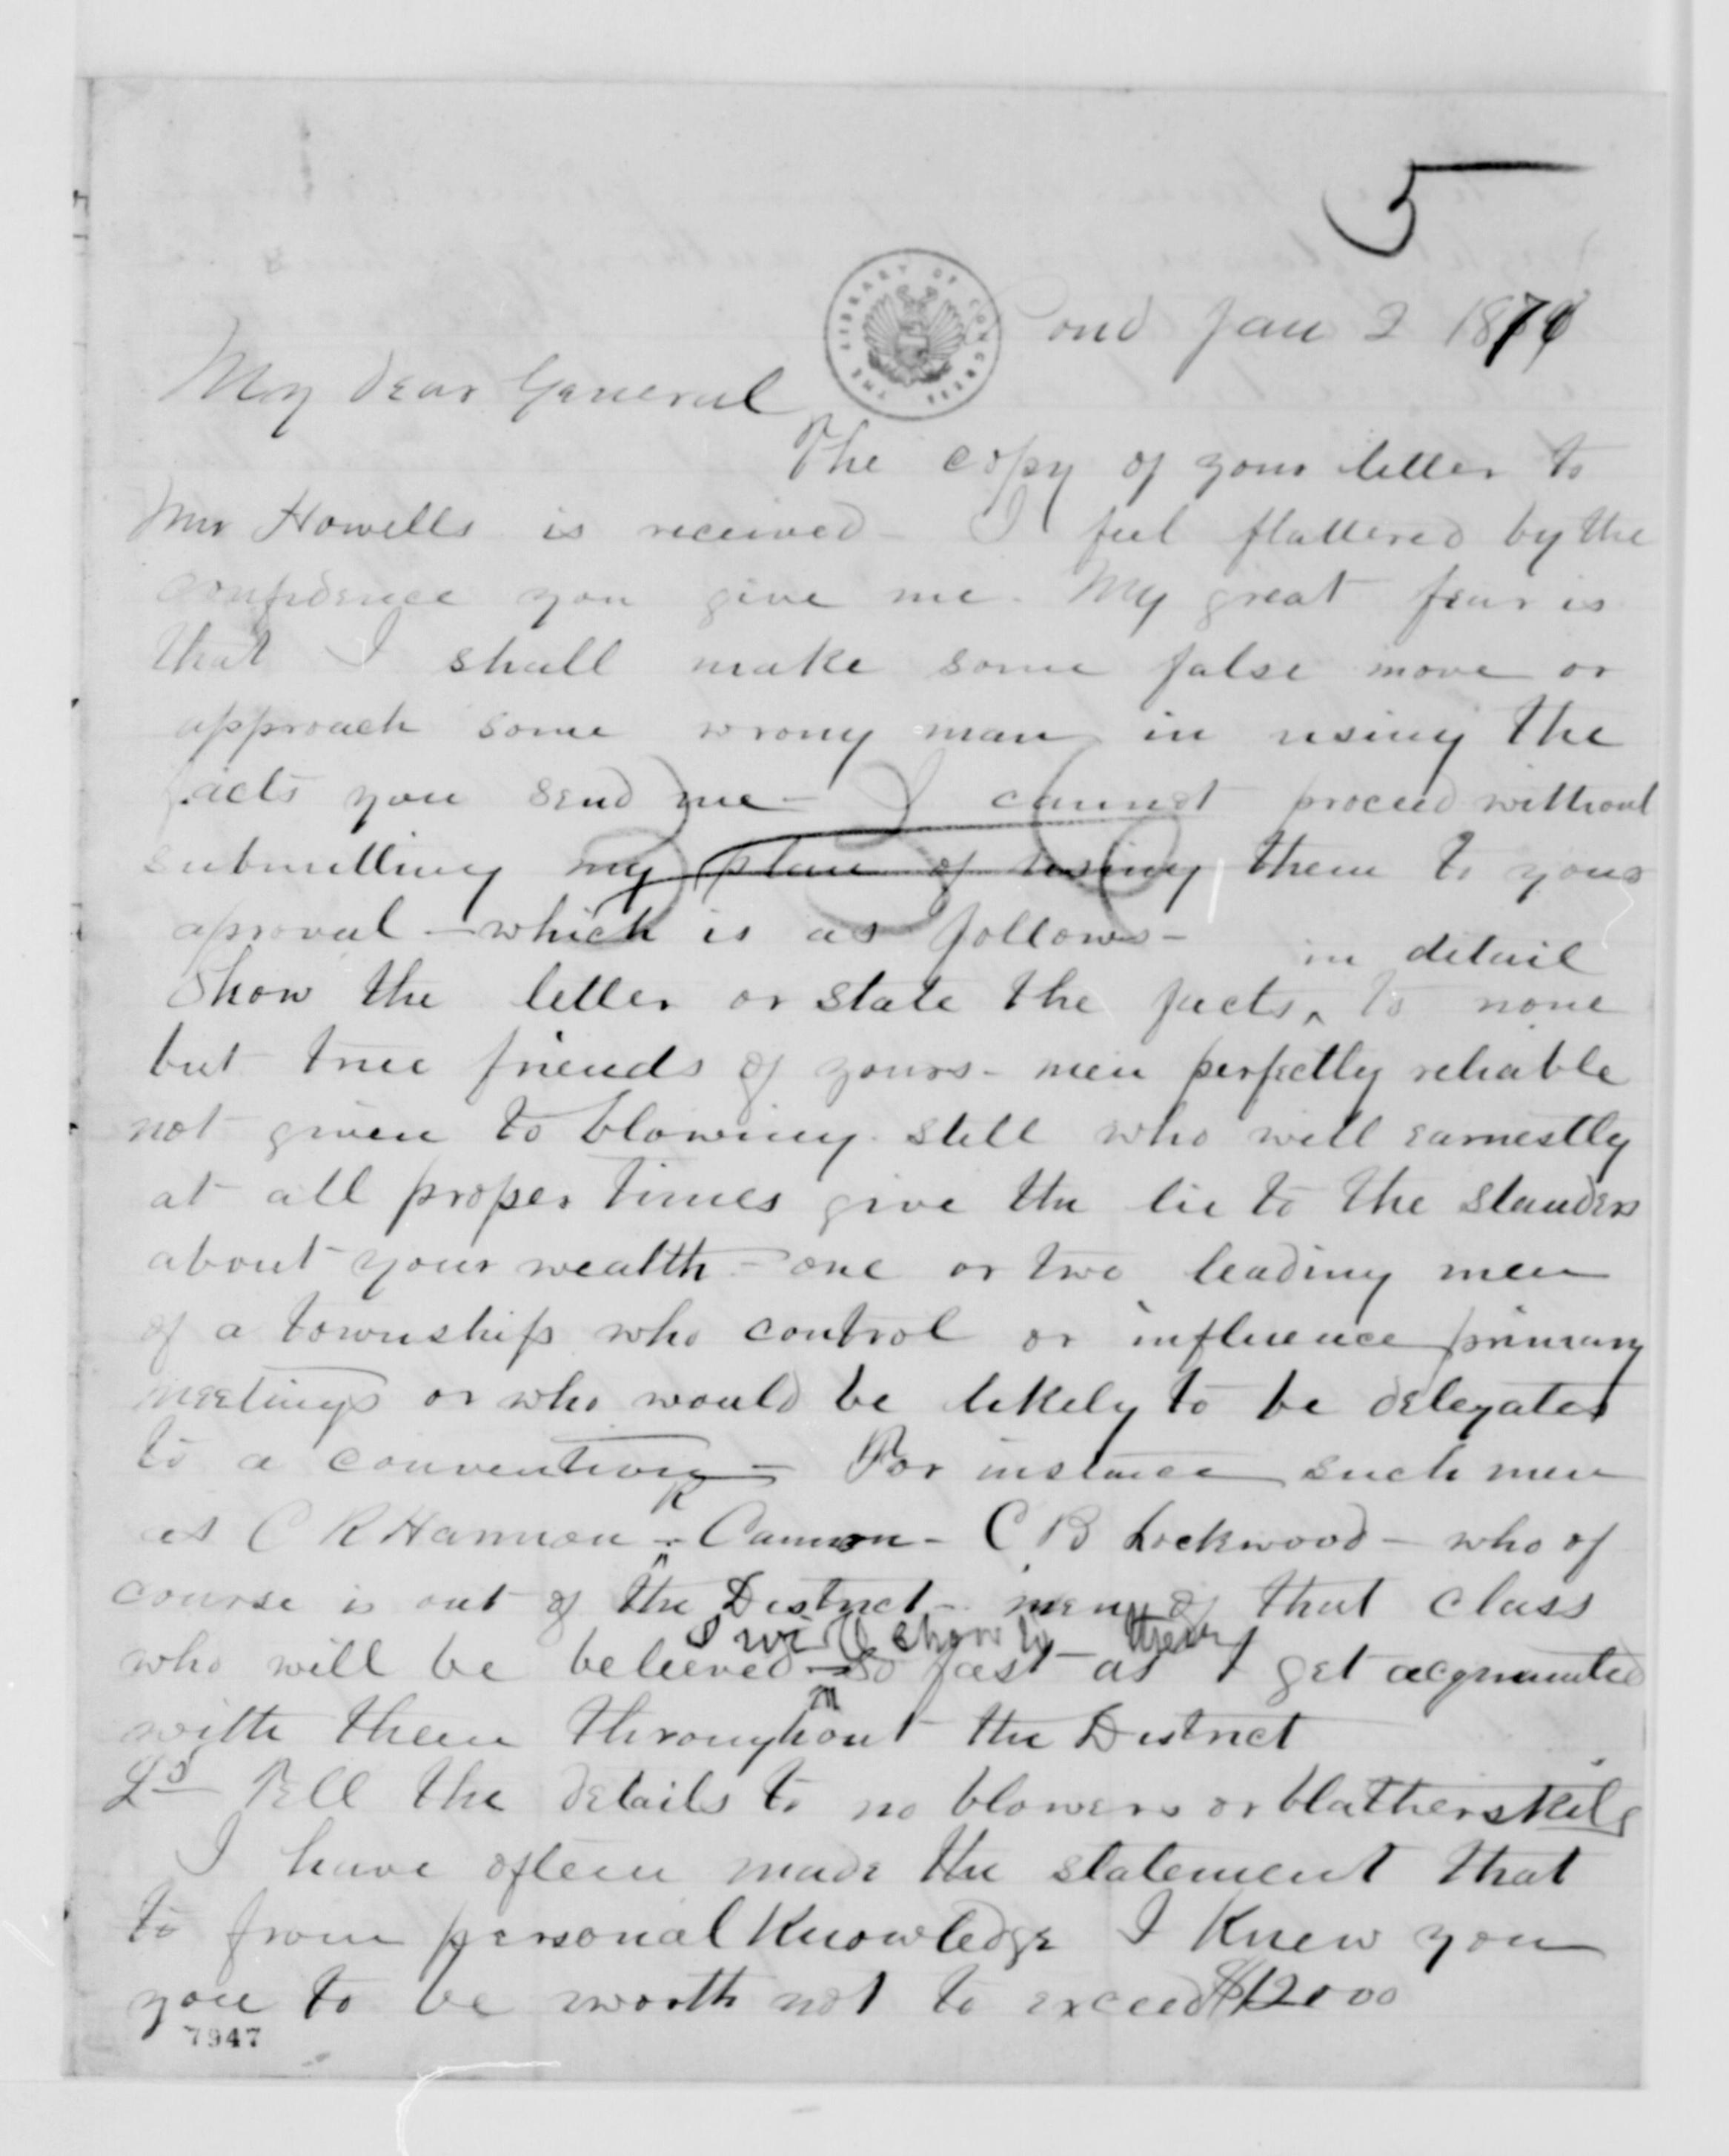 5
THE LIBRARY OF CONGRESS
ond Jan 2 1874
My dear General
The copy of your letter to
Mr Howells is received - I feel flattered by the
confidence you give me. My great fear is
that I shall make some false move or
approach some wrong man in using the
facts you send me - I cannot proceed without
submitting my plan of using them to your
aproval - which is as follows -
in detail
Show the letter or state the facts ‸ to none
but true friends of yours - men perfectly reliable
not given to blowing still who will earnestly
at all proper times give the lie to the slanders
about your wealth - one or two leading men
of a township who control or influence primary
meetings or who would be likely to be delegates
to a convention - For instance such men
R
as C R Harmon - Cannon - C B Lockwood - who of
course is out of the District - men of that class
I will show to them
who will be believed - so fast as I get acquainted
with them throughout the District
2d Tell the details to no blowers or blatherskits
I have often made the statement that
to from personal Knowledge I Knew you
you to be worth not to exceed $12000
7947